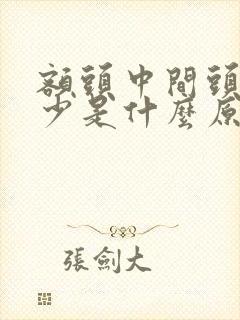 額頭中間頭
少是什麼原
張劍大